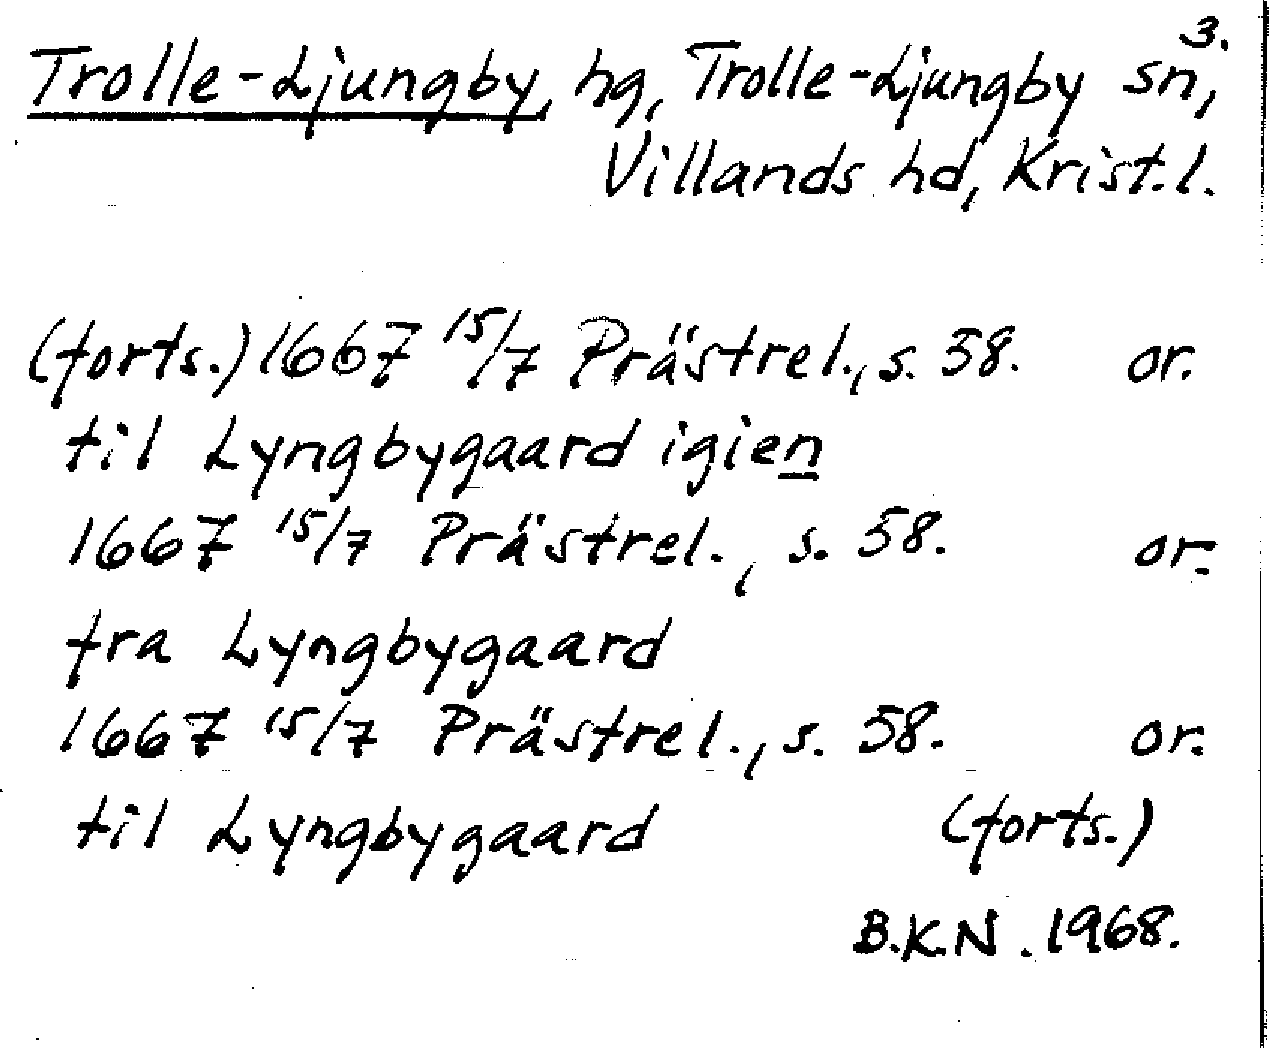 3.
Trolle-Ljungby, hg, Trolle-Ljungby sn,
Villands hd, Krist.l.
(forts.) 1667 15/7 Prästrel., s. 58. or.
til Lyngbygaard igien
1667 15/7 Prästrel., s. 58. or.
fra Lyngbygaard
1667 15/7 Prästrel., s. 58. or.
til Lyngbygaard (forts.)
B.K.N. 1968.